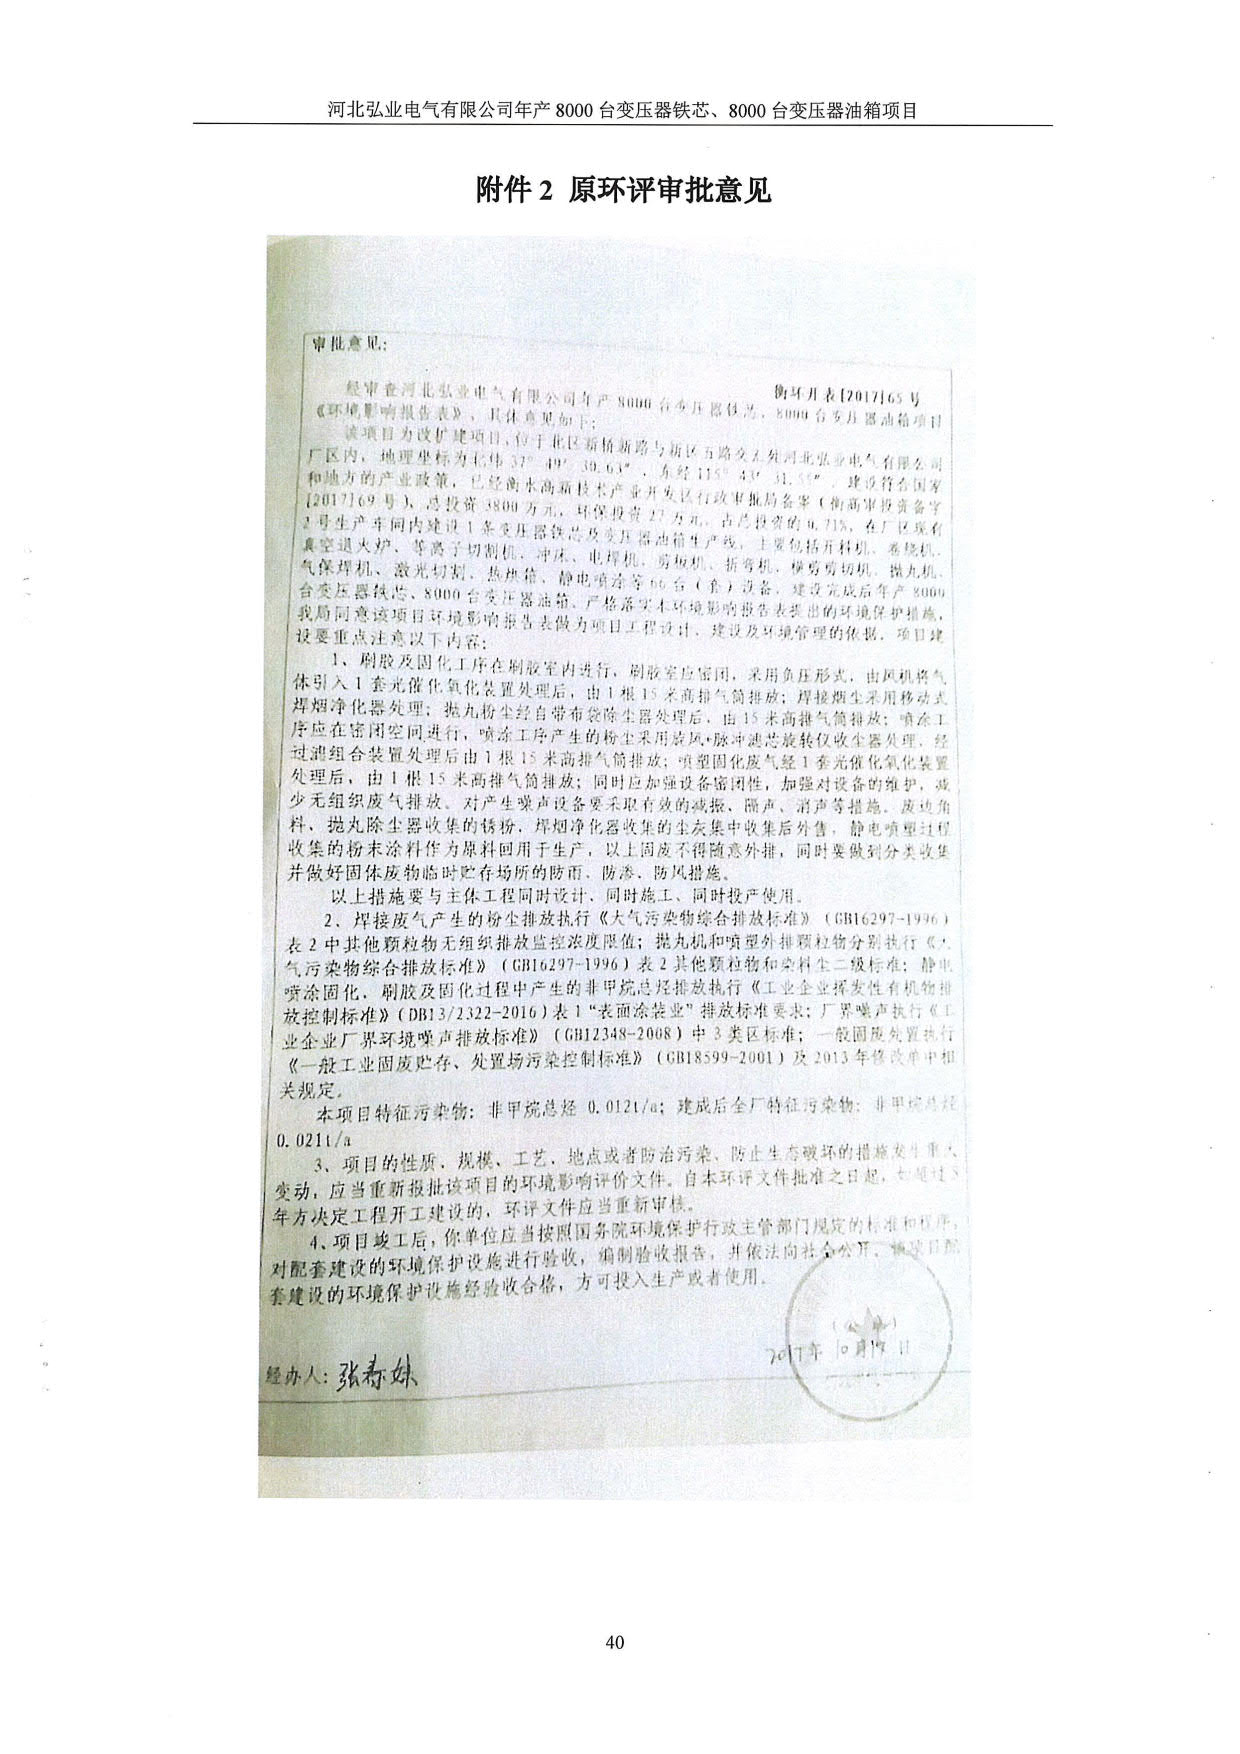 河北弘业电气有限公司年产 8000 台变压器铁芯、8000 台变压器油箱项目
附件 2 原环评审批意见
审批意见:
衡环开表[2017]65号
经审查河北弘业电气有限公司年产8000台变压器铁芯、8000台变压器油箱项目
《环境影响报告表》,具体意见如下:
该项目为改扩建项目,位于北区新桥新路与新区五路交叉处河北弘业电气有限公司
厂区内,地理坐标为北纬37° 49′ 30.63″,东经115° 43′ 31.55″,建设符合国家
和地方的产业政策,已经衡水高新技术产业开发区行政审批局备案(衡高审投资备字
[2017]69号)、总投资3800万元,环保投资27万元,占总投资的0.71%,在厂区现有
2号生产车间内建设1条变压器铁芯及变压器油箱生产线,主要包括开料机、卷绕机、
真空退火炉、等离子切割机、冲床、电焊机、剪板机、折弯机、横剪剪切机、抛丸机、
气保焊机、激光切割、热烘箱、静电喷涂等66台(套)设备,建设完成后年产8000
台变压器铁芯、8000台变压器油箱。严格落实本环境影响报告表提出的环境保护措施,
我局同意该项目环境影响报告表做为项目工程设计、建设及环境管理的依据。项目建
设要重点注意以下内容:
1、刷胶及固化工序在刷胶室内进行,刷胶室应密闭,采用负压形式,由风机将气
体引入1套光催化氧化装置处理后,由1根15米高排气筒排放;焊接烟尘采用移动式
焊烟净化器处理;抛丸粉尘经自带布袋除尘器处理后,由15米高排气筒排放;喷涂工
序应在密闭空间进行,喷涂工序产生的粉尘采用旋风+脉冲滤芯旋转仪收尘器处理,经
过滤组合装置处理后由1根15米高排气筒排放;喷塑固化废气经1套光催化氧化装置
处理后,由1根15米高排气筒排放;同时应加强设备密闭性,加强对设备的维护,减
少无组织废气排放。对产生噪声设备要采取有效的减振、隔声、消声等措施。废边角
料、抛丸除尘器收集的锈粉、焊烟净化器收集的尘灰集中收集后外售,静电喷塑过程
收集的粉末涂料作为原料回用于生产,以上固废不得随意外排,同时要做到分类收集
并做好固体废物临时贮存场所的防雨、防渗、防风措施。
以上措施要与主体工程同时设计、同时施工、同时投产使用。
2、焊接废气产生的粉尘排放执行《大气污染物综合排放标准》(GB16297-1996)
表2中其他颗粒物无组织排放监控浓度限值;抛丸机和喷塑外排颗粒物分别执行《大
气污染物综合排放标准》(GB16297-1996)表2其他颗粒物和染料尘二级标准;静电
喷涂固化、刷胶及固化过程中产生的非甲烷总烃排放执行《工业企业挥发性有机物排
放控制标准》(DB13/2322-2016)表1“表面涂装业”排放标准要求;厂界噪声执行《工
业企业厂界环境噪声排放标准》(GB12348-2008)中3类区标准;一般固废处置执行
《一般工业固废贮存、处置场污染控制标准》(GB18599-2001)及2013年修改单中相
关规定。
本项目特征污染物:非甲烷总烃 0.012t/a;建成后全厂特征污染物:非甲烷总烃
0.021t/a
3、项目的性质、规模、工艺、地点或者防治污染、防止生态破坏的措施发生重大
变动,应当重新报批该项目的环境影响评价文件。自本环评文件批准之日起,如超过5
年方决定工程开工建设的,环评文件应当重新审核。
4、项目竣工后,你单位应当按照国务院环境保护行政主管部门规定的标准和程序,
对配套建设的环境保护设施进行验收,编制验收报告,并依法向社会公开,该项目配
套建设的环境保护设施经验收合格,方可投入生产或者使用。
(公章)
2017年 10月17日
经办人:张寿妹
40